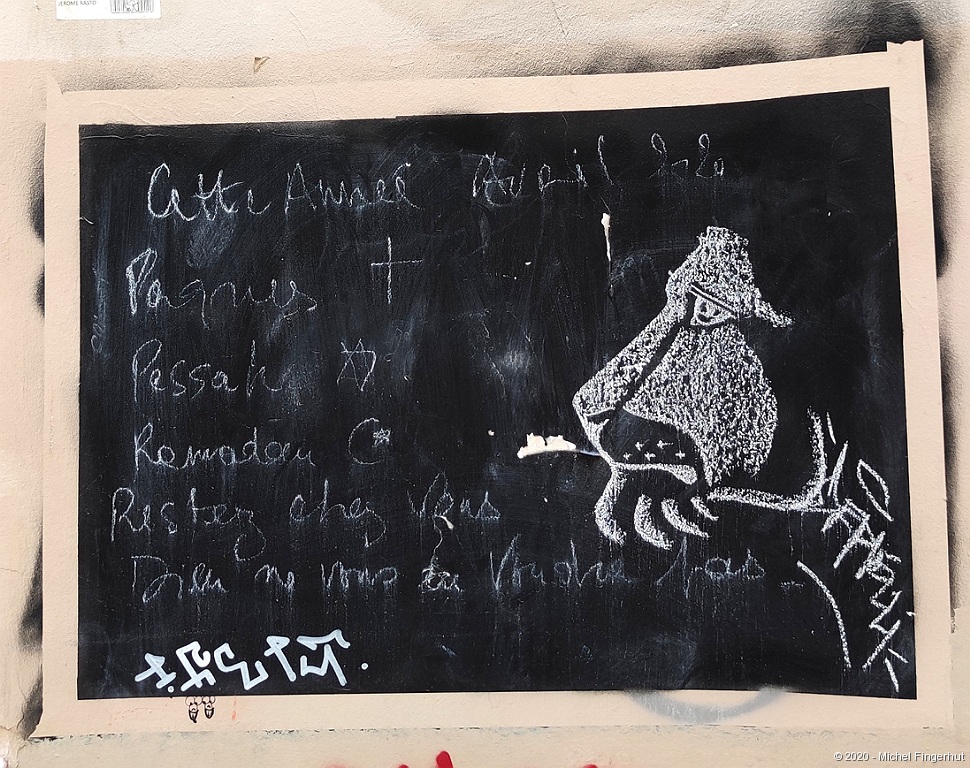 JEROME RASTO
Cette Année Avril 2020
Paques
Pessah
Ramadan
Restez chez Vous
Dieu ne vous en Voudra pas
© 2020 - Michel Fingerhut